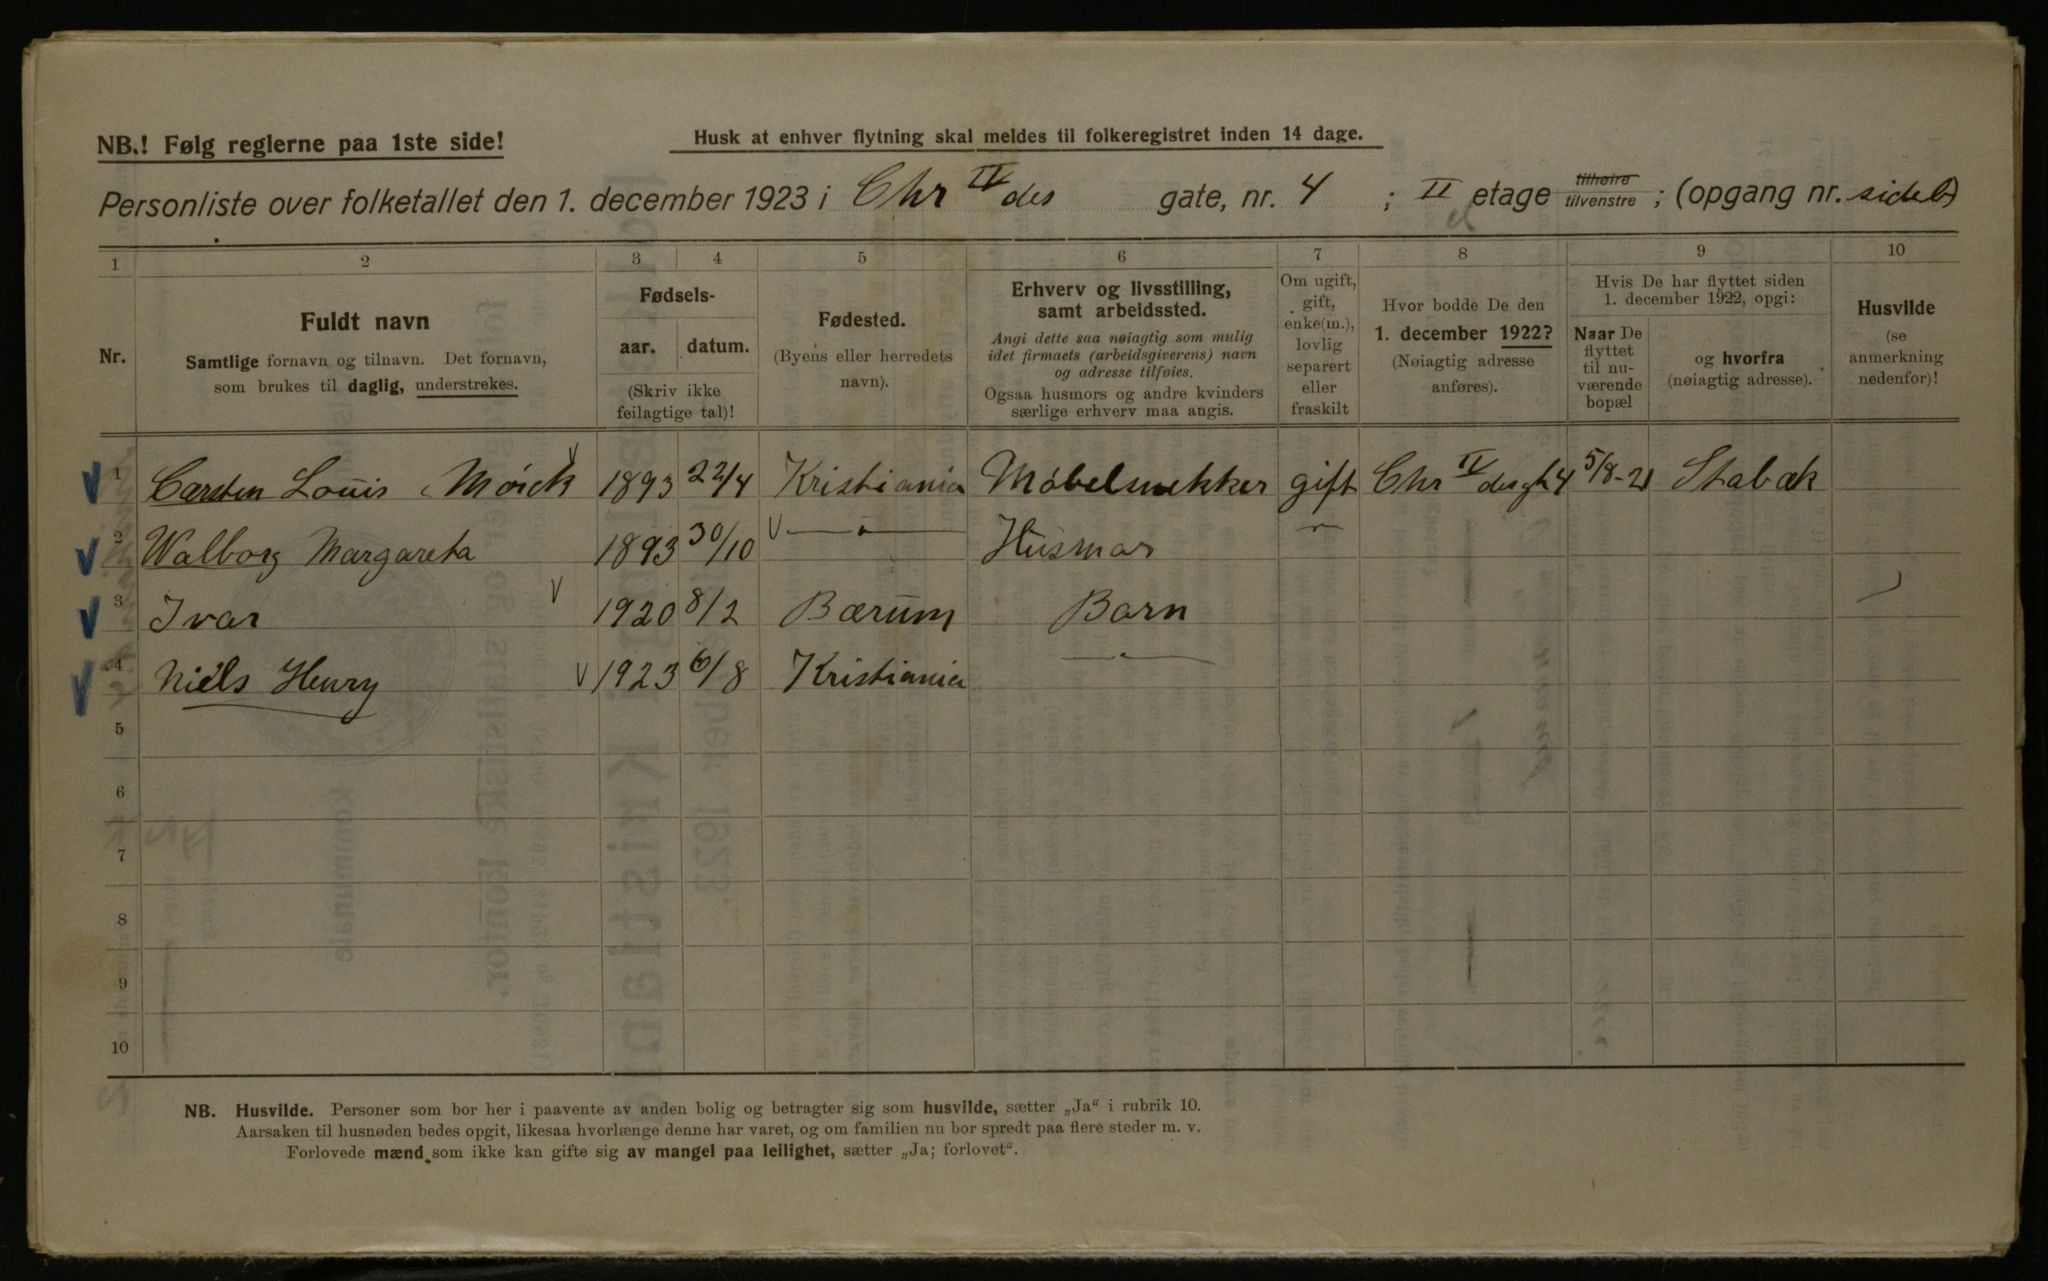 NB.! Følg reglerne paa 1ste side!
Husk at enhver flytning skal meldes til folkeregistret inden 14 dage.
Personliste over folketallet den 1. december 1923 i Chr IV des gate, nr. 4 ; II etage tilhøire tilvenstre ; (opgang nr.
1 2 3 4 5 6 7 8 9 10
Nr.
Fuldt navn
Samtlige fornavn og tilnavn. Det fornavn,
som brukes til daglig, understrekes.
Fødsels-
aar. datum.
(Skriv ikke
feilagtige tal)!
Fødested.
(Byens eller herredets
navn).
Erhverv og livsstilling,
samt arbeidssted.
Angi dette saa nøiagtig som mulig
idet firmaets (arbeidsgiverens) navn
og adresse tilføies.
Ogsaa husmors og andre kvinders
særlige erhverv maa angis.
Om ugift,
gift,
enke(m.),
lovlig
separert
eller
fraskilt
Hvor bodde De den
1. december 1922?
(Nøiagtig adresse
anføres).
Hvis De har flyttet siden
1. december 1922, opgi:
Naar De
flyttet
til nu-
værende
bopæl
og hvorfra
(nøiagtig adresse).
Husvilde
(se
anmerkning
nedenfor)!
1 Carsten Louis Mörck 1893 22/4 Kristiania Möbelsnekker gift Chr IV des gt 4 5/8-21 Stabæk
2 Walborg Margareta 1893 30/10 — " — Husmor "
3 Ivar 1920 8/2 Bærum Barn
4 Niels Henry 1923 6/8 Kristiania — " —
5
6
7
8
9
10
NB. Husvilde. Personer som bor her i paavente av anden bolig og betragter sig som husvilde, sætter „Ja“ i rubrik 10.
Aarsaken til husnøden bedes opgit, likesaa hvorlænge denne har varet, og om familien nu bor spredt paa flere steder m. v.
Forlovede mænd som ikke kan gifte sig av mangel paa leilighet, sætter „Ja; forlovet“.